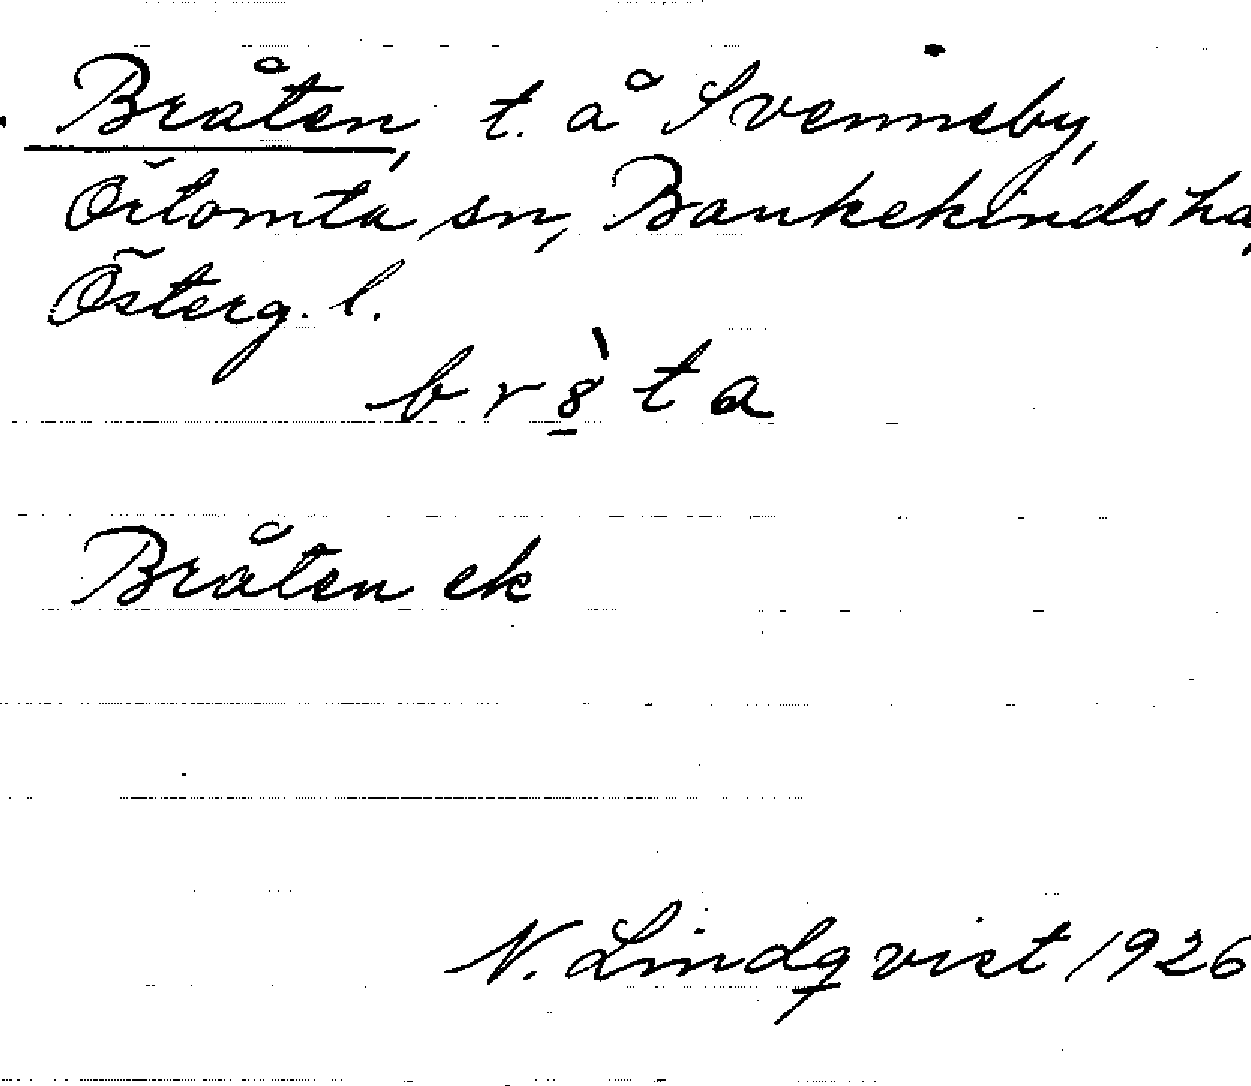 Bråten, t. å Svenneby,
Örtomta sn, Bankekinds hd,
Österg. l.
br8̠̀ta
Bråten ek
N. Lindqvist 1926